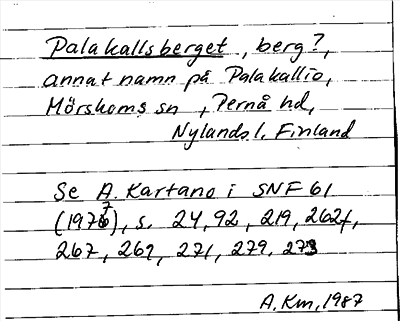 Palakallsberget, berg?,
annat namn på Palakallio,
Mörskoms sn, Pernå hd,
Nylands l. Finland
Se A. Kartano i SNF 61
(1977), s. 24, 92, 219, 262f,
267, 269, 271, 279. 273
A. Km, 1987